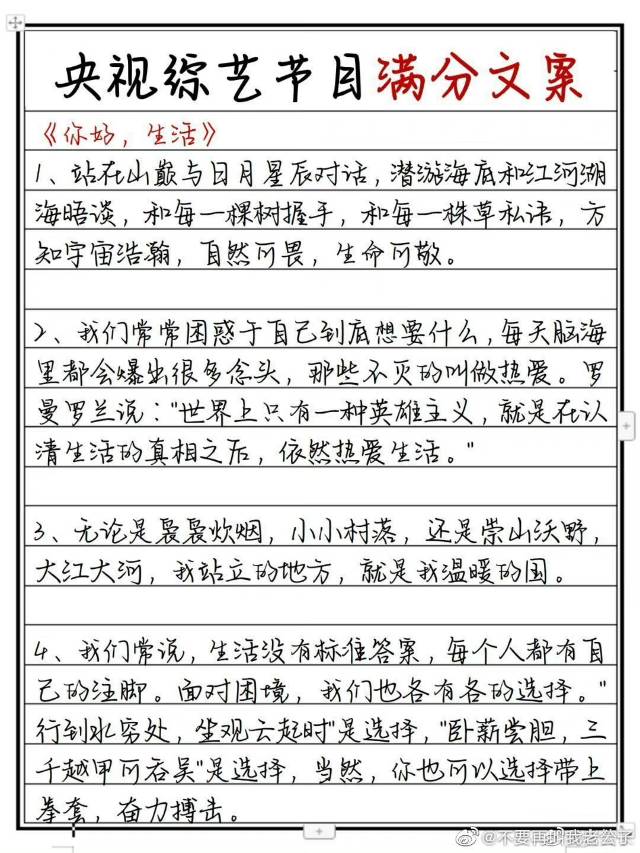 央视综艺节目满分文案
《你好，生活》
1、站在山巅与日月星辰对话，潜游海底和江河湖
海晤谈，和每一棵树握手，和每一株草私语，方
知宇宙浩瀚，自然可畏，生命可敬。
2、我们常常困惑于自己到底想要什么，每天脑海
里都会爆出很多念头，那些不灭的叫做热爱。罗
曼罗兰说："世界上只有一种英雄主义，就是在认
清生活的真相之后，依然热爱生活。"
3、无论是袅袅炊烟，小小村落，还是崇山沃野，
大江大河，我站立的地方，就是我温暖的国。
4、我们常说，生活没有标准答案，每个人都有自
己的注脚。面对困境，我们也各有各的选择。"
行到水穷处，坐观云起时"是选择，"卧薪尝胆，三
千越甲可吞吴"是选择，当然，你也可以选择带上
拳套，奋力搏击。
@不要再叫我老公子